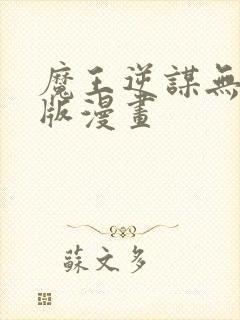 魔王逆謀無
版漫畫
蘇文多